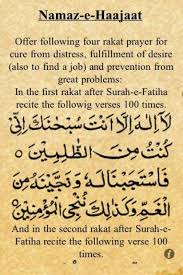 Namaz-e-Haajaat
Offer following four rakat prayer for
cure from distress, fulfillment of desire
(also to find a job) and prevention from
great problems:
In the first rakat after Surah-e-Fateha
recite the followig verses 100 times.
لَا إِلَهَ إِلَّا أَنْتَ سُبْحَنَكَ إِنِّي
كُنْتُ مِنَ الظَّلِمِيْنَ
فَاسْتَجَبْنَالَهُ وَنَجَّيْنَهُ مِنَ
الْغَمِّ وَكَذَلِكَ نُنْجِي الْمُؤْمِنِيْنَ
And in the second rakat after Surah-e-
Fatiha recite the following verse 100
times.